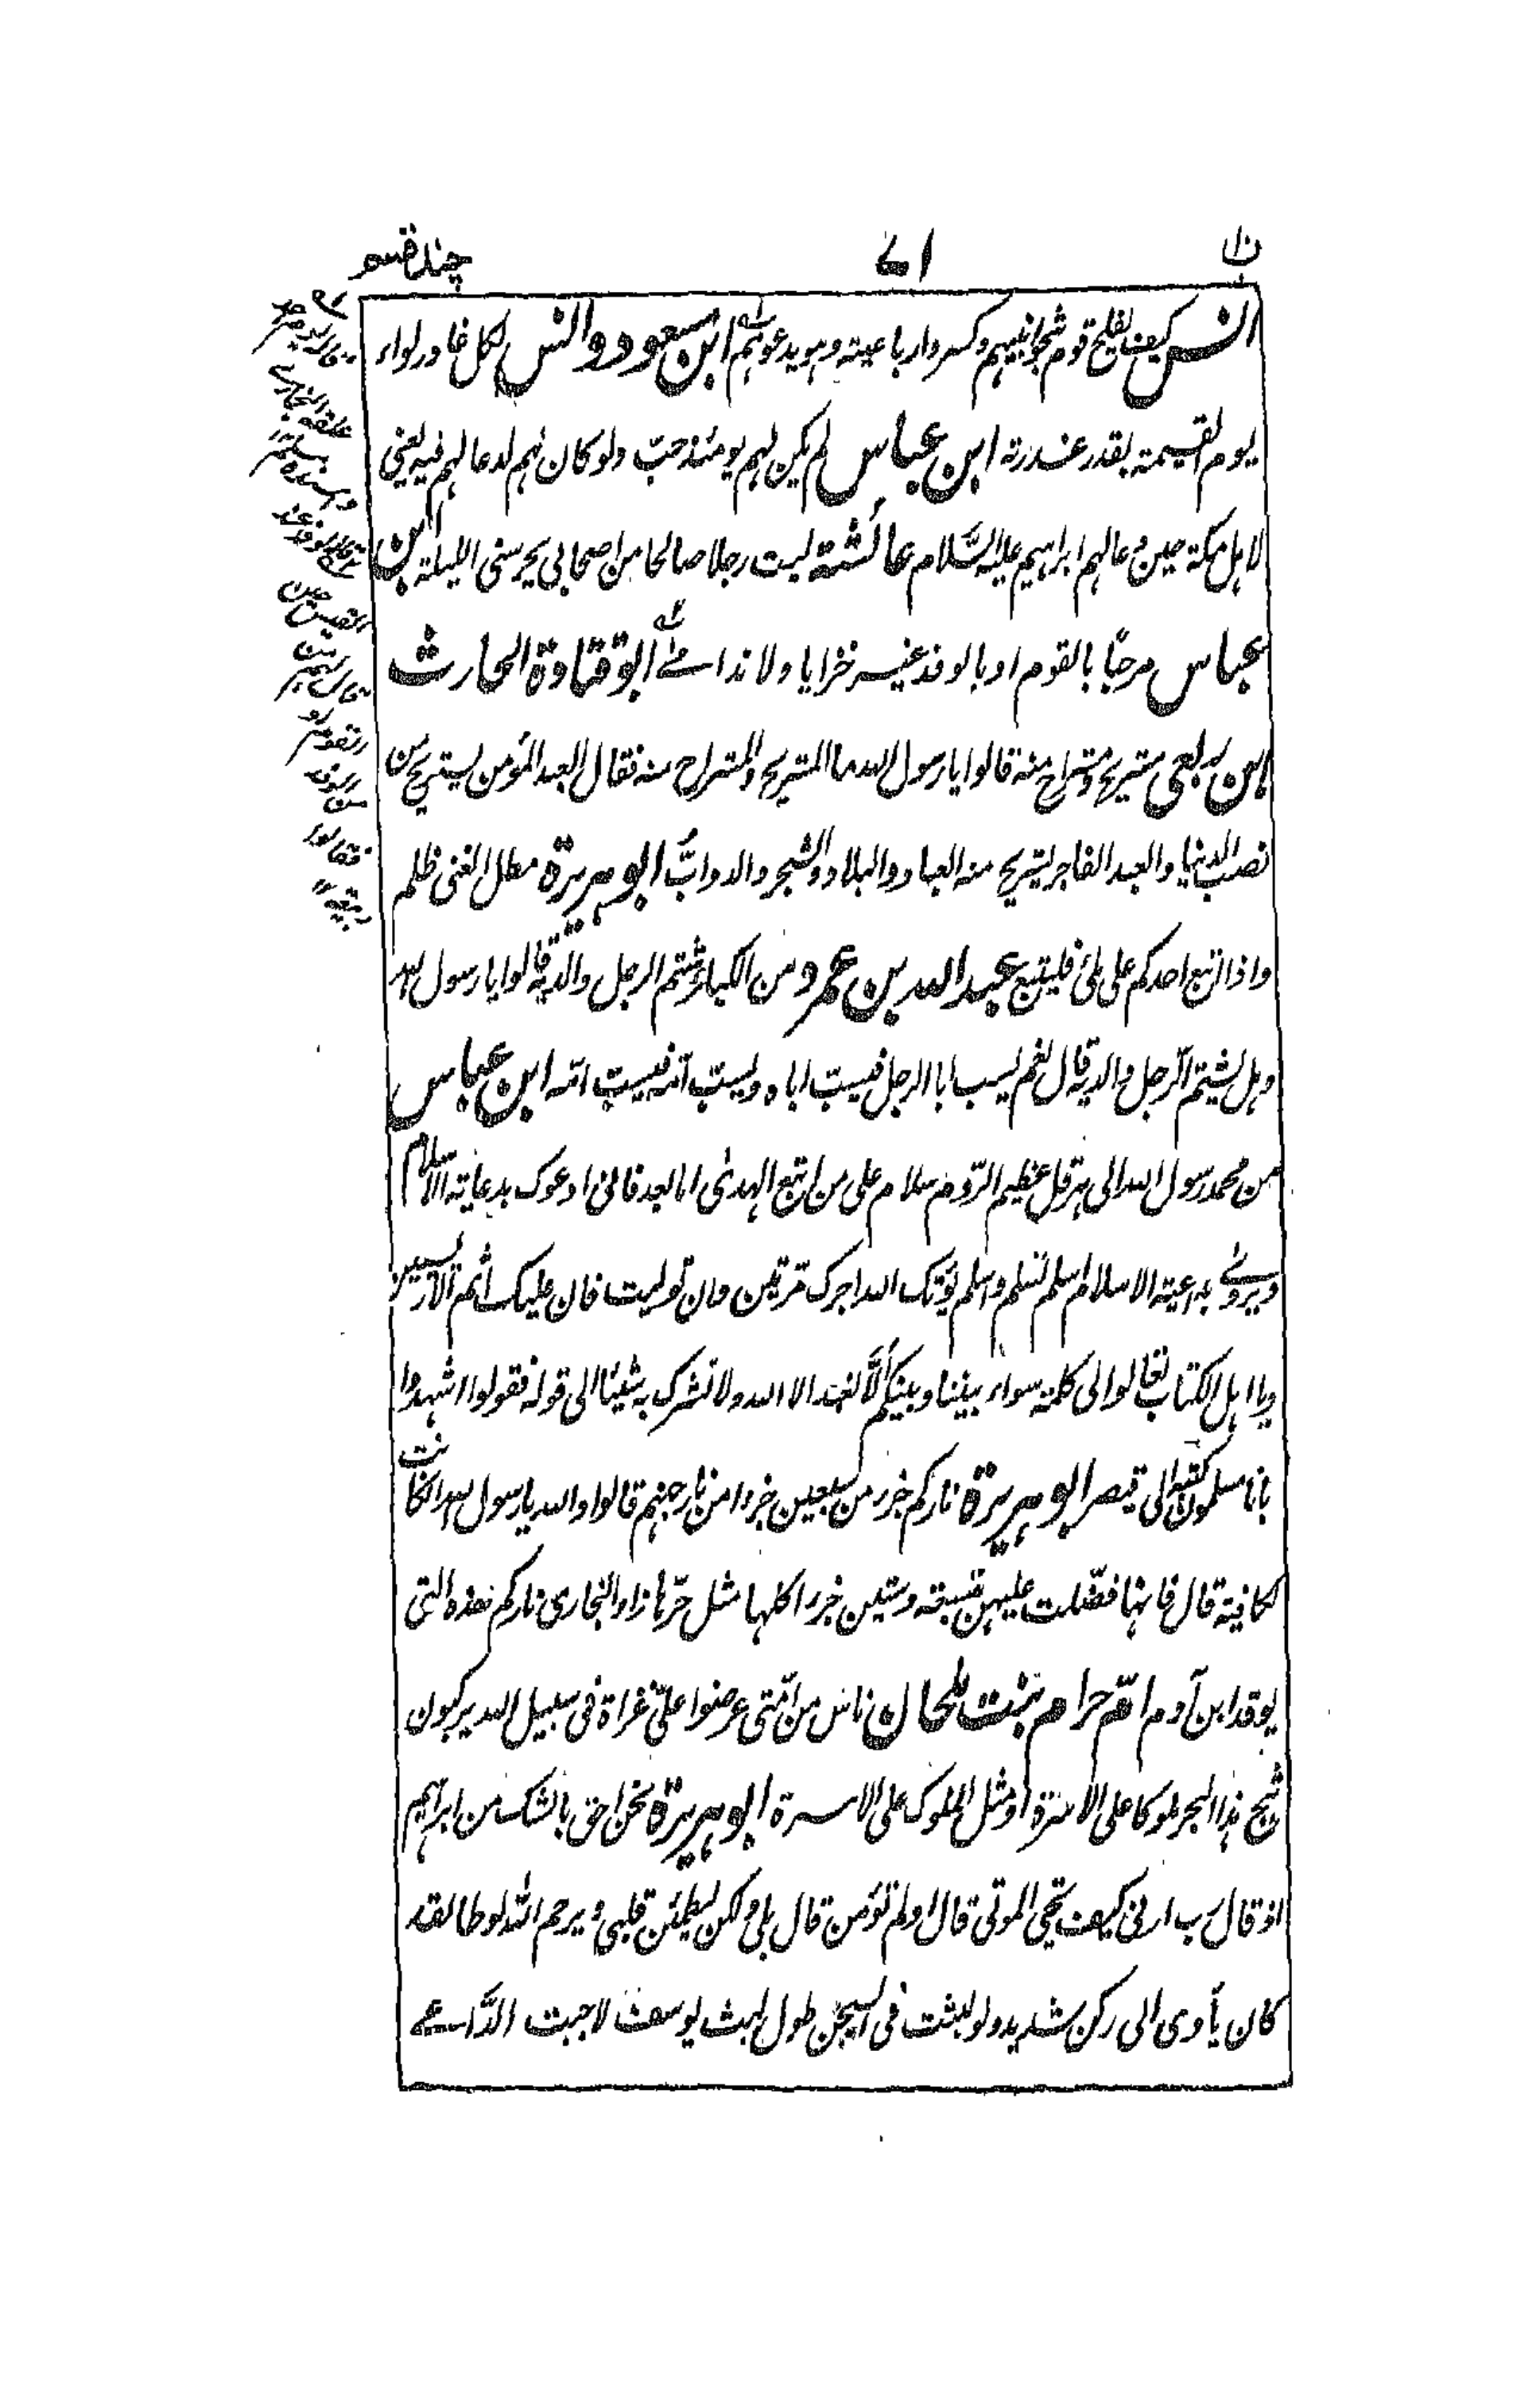 ن ٧١ چند قسم
انس كيف يفلح قوم شجوا نبيهم وكسروا رباعيته وهو يدعوهم ابن مسعود وانس لكل غادر لواء
يوم القيمة بقدر غدرته ابن عباس لم يكن لهم يومئذ حبّ ولو كان لهم لدعا لهم فيه يعني
لاهل مكة حين دعا لهم ابراهيم عليه السّلام عائشة ليت رجلا صالحا من اصحابي يحرسني الليلة ابن
عباس مرحبًا بالقوم او بالوفد غير خزايا ولا ندامى ابو قتادة الحارث
ابن ربعي مستريح ومستراح منه قالوا يا رسول الله ما المستريح والمستراح منه فقال العبد المؤمن يستريح من
نصب الدنيا والعبد الفاجر يستريح منه العباد والبلاد والشجر والدوابّ ابو هريرة مطل الغنى ظلم
واذا اتبع احدكم على ملئ فليتبع عبد الله بن عمرو من الكبائر شتم الرجل والديه قالوا يا رسول الله
وهل يشتم الرّجل والديه قال نعم يسب ابا الرجل فيسبّ اباه ويسبّ امّه فيسبّ امّه ابن عباس
من محمد رسول الله الى هرقل عظيم الرّوم سلام على من اتبع الهدى اما بعد فاني ادعوك بدعاية الاسلام
ويروى بداعية الاسلام اسلم تسلم واسلم يؤتك الله اجرك مرّتين وان توليت فان عليك اثم الاريسيين
ويا اهل الكتاب تعالوا الى كلمة سواء بيننا وبينكم ألّا نعبد الا الله ولا نشرك به شيئا الى قوله فقولوا اشهدوا
بانا مسلمون كتبه الى قيصر ابو هريرة ناركم جزء من سبعين جزءا من نار جهنم قالوا والله يا رسول الله ان كانت
لكافية قال فانها فضّلت عليهن بتسعة وستين جزءا كلها مثل حرّها زاد البخارى ناركم هذه التى
يوقد ابن آدم امّ حرام بنت ملحان ناس من امّتى عرضوا علىّ غزاة فى سبيل الله يركبون
ثبج هذا البحر ملوكا على الاسرّة او مثل الملوك على الاسرة ابو هريرة نحن احق بالشك من ابراهيم
اذ قال رب ارنى كيف تحيى الموتى قال اولم تؤمن قال بلى ولكن ليطمئن قلبى ويرحم الله لوطا لقد
كان يأوى الى ركن شديد ولو لبثت فى السجن طول لبث يوسف لاجبت الدّاعى